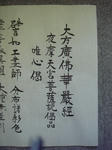 大方廣佛華嚴經
夜摩天宮菩薩説偈品
唯心偈
譬如工畫師 分布諸彩色